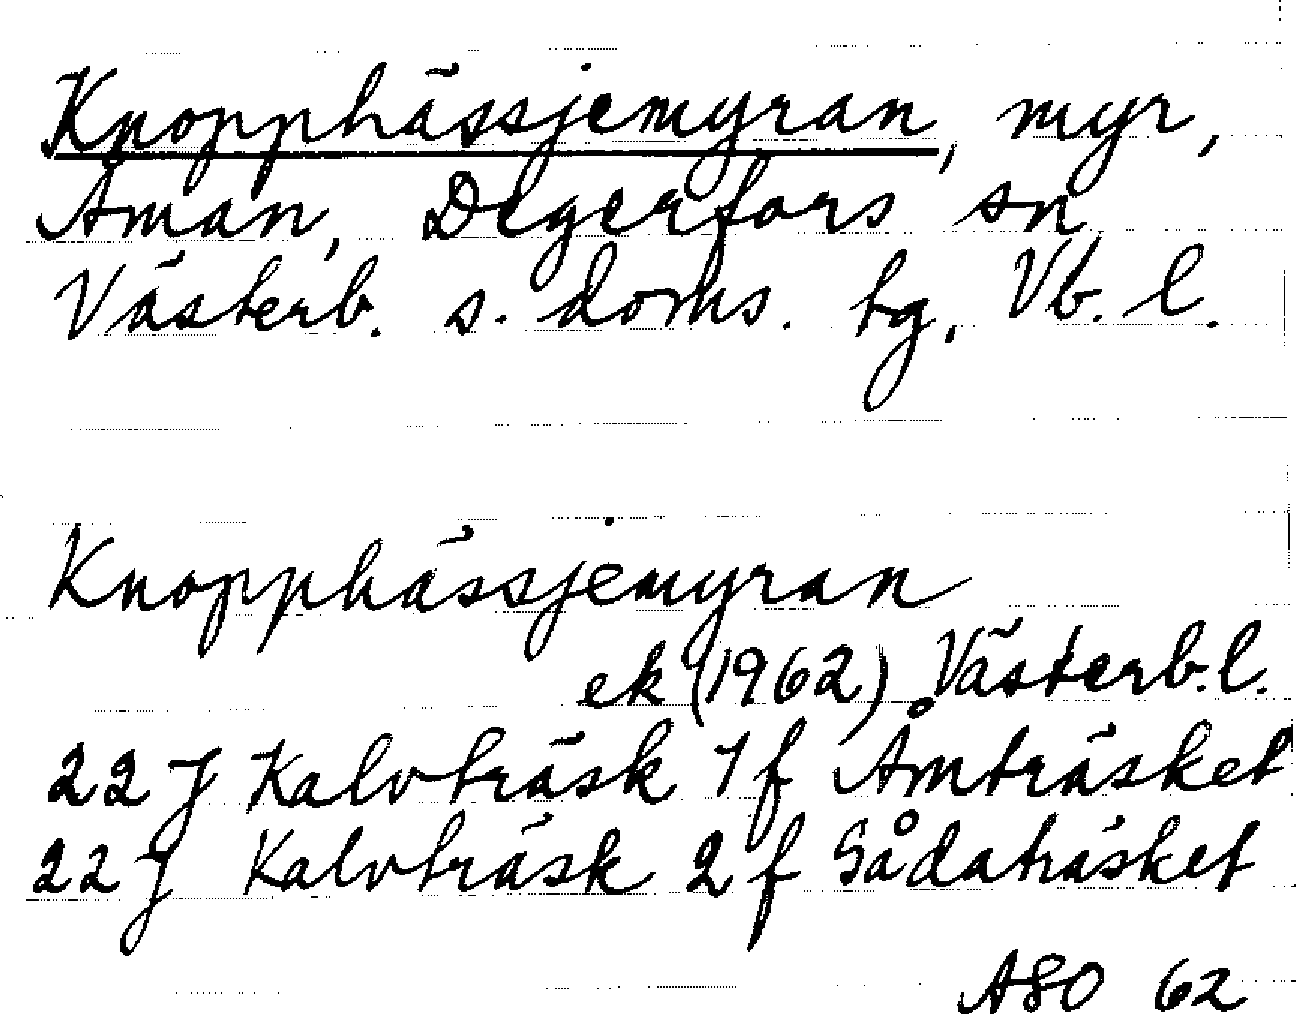 Knopphässjemyran, myr,
Åman, Degerfors sn
Västerb. s. doms. tg, Vb. l.
Knopphässjemyran
ek (1962) Västerb. l.
22 J Kalvträsk 1 f Åmträsket
22 J Kalvträsk 2 f Sådaträsket
ASO 62